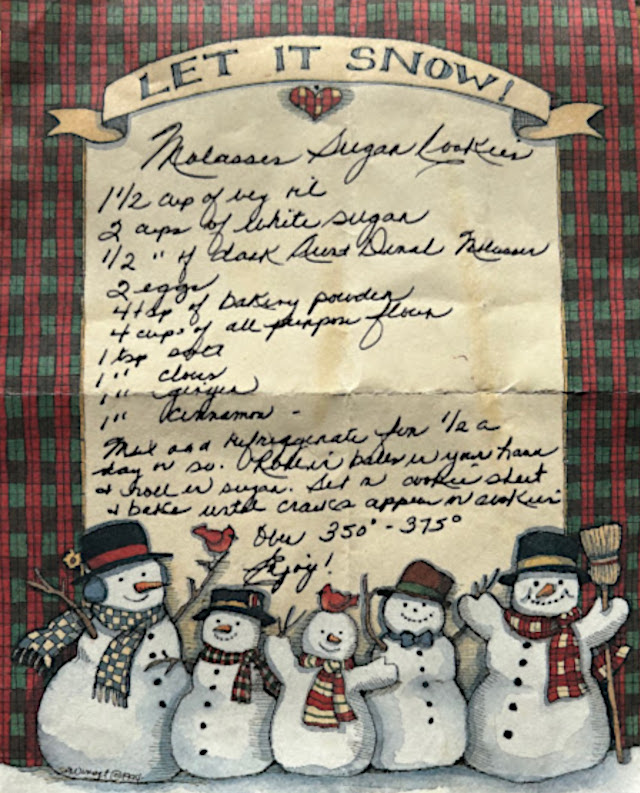 LET IT SNOW!
Molasses Sugar Cookies
1 1/2 cup of veg oil
2 cups of white sugar
1/2 " of dark Aunt Dinah Molasses
2 eggs
4 tsp of baking powder
4 cups of all purpose flour
1 tsp salt
1 " cloves
1 " ginger
1 " cinnamon -
Mix and refrigerate for 1/2 a
day or so. Roll in balls in your hand
& roll in sugar. Set on cookie sheet
& bake until cracks appear on cookies
Oven 350° - 375°
Enjoy!